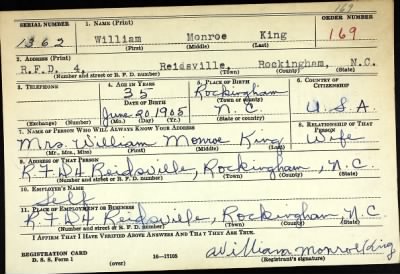 169
SERIAL NUMBER 1. NAME (Print) ORDER NUMBER
1362 William Monroe King 169
(First) (Middle) (Last)
2. ADDRESS (Print)
R.F.D. 4, Reidsville, Rockingham, N.C.
(Number and street or R. F. D. number) (Town) (County) (State)
3. TELEPHONE 4. AGE IN YEARS 5. PLACE OF BIRTH 6. COUNTRY OF CITIZENSHIP
35 Rockingham
DATE OF BIRTH (Town or county)
June 20 1905 N.C. U.S.A
(Exchange) (Number) (Mo.) (Day) (Yr.) (State or country)
7. NAME OF PERSON WHO WILL ALWAYS KNOW YOUR ADDRESS 8. RELATIONSHIP OF THAT PERSON
Mrs. William Monroe King Wife
(Mr., Mrs., Miss) (First) (Middle) (Last)
9. ADDRESS OF THAT PERSON
RFD4 Reidsville, Rockingham, N.C
(Number and street or R. F. D. number) (Town) (County) (State)
10. EMPLOYER'S NAME
Self
11. PLACE OF EMPLOYMENT OR BUSINESS
RFD4 Reidsville, Rockingham, N.C.
(Number and street or R. F. D. number) (Town) (County) (State)
I AFFIRM THAT I HAVE VERIFIED ABOVE ANSWERS AND THAT THEY ARE TRUE.
REGISTRATION CARD
D. S. S. Form 1 (over) 16—17105 William Monroe King
(Registrant's signature)